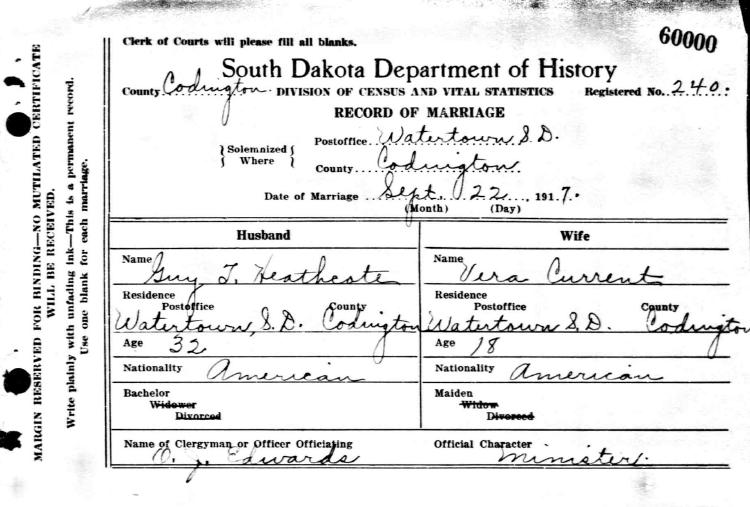 60000
Clerk of Courts will please fill all blanks.
South Dakota Department of History
County Codington DIVISION OF CENSUS AND VITAL STATISTICS Registered No. 240.
RECORD OF MARRIAGE
Solemnized Where
Postoffice Watertown S.D.
County Codington
Date of Marriage Sept. 22, 1917.
(Month) (Day)
Husband
Name Guy T. Heathcote
Residence
Postoffice County
Watertown, S.D. Codington
Age 32
Nationality American
Bachelor
Widower
Divorced
Name of Clergyman or Officer Officiating
O. J. Edwards
Wife
Name Vera Current
Residence
Postoffice County
Watertown S.D. Codington
Age 18
Nationality American
Maiden
Widow
Divorced
Official Character
Minister.
MARGIN RESERVED FOR BINDING—NO MUTILATED CERTIFICATE
WILL BE RECEIVED.
Write plainly with unfading ink—This is a permanent record.
Use one blank for each marriage.